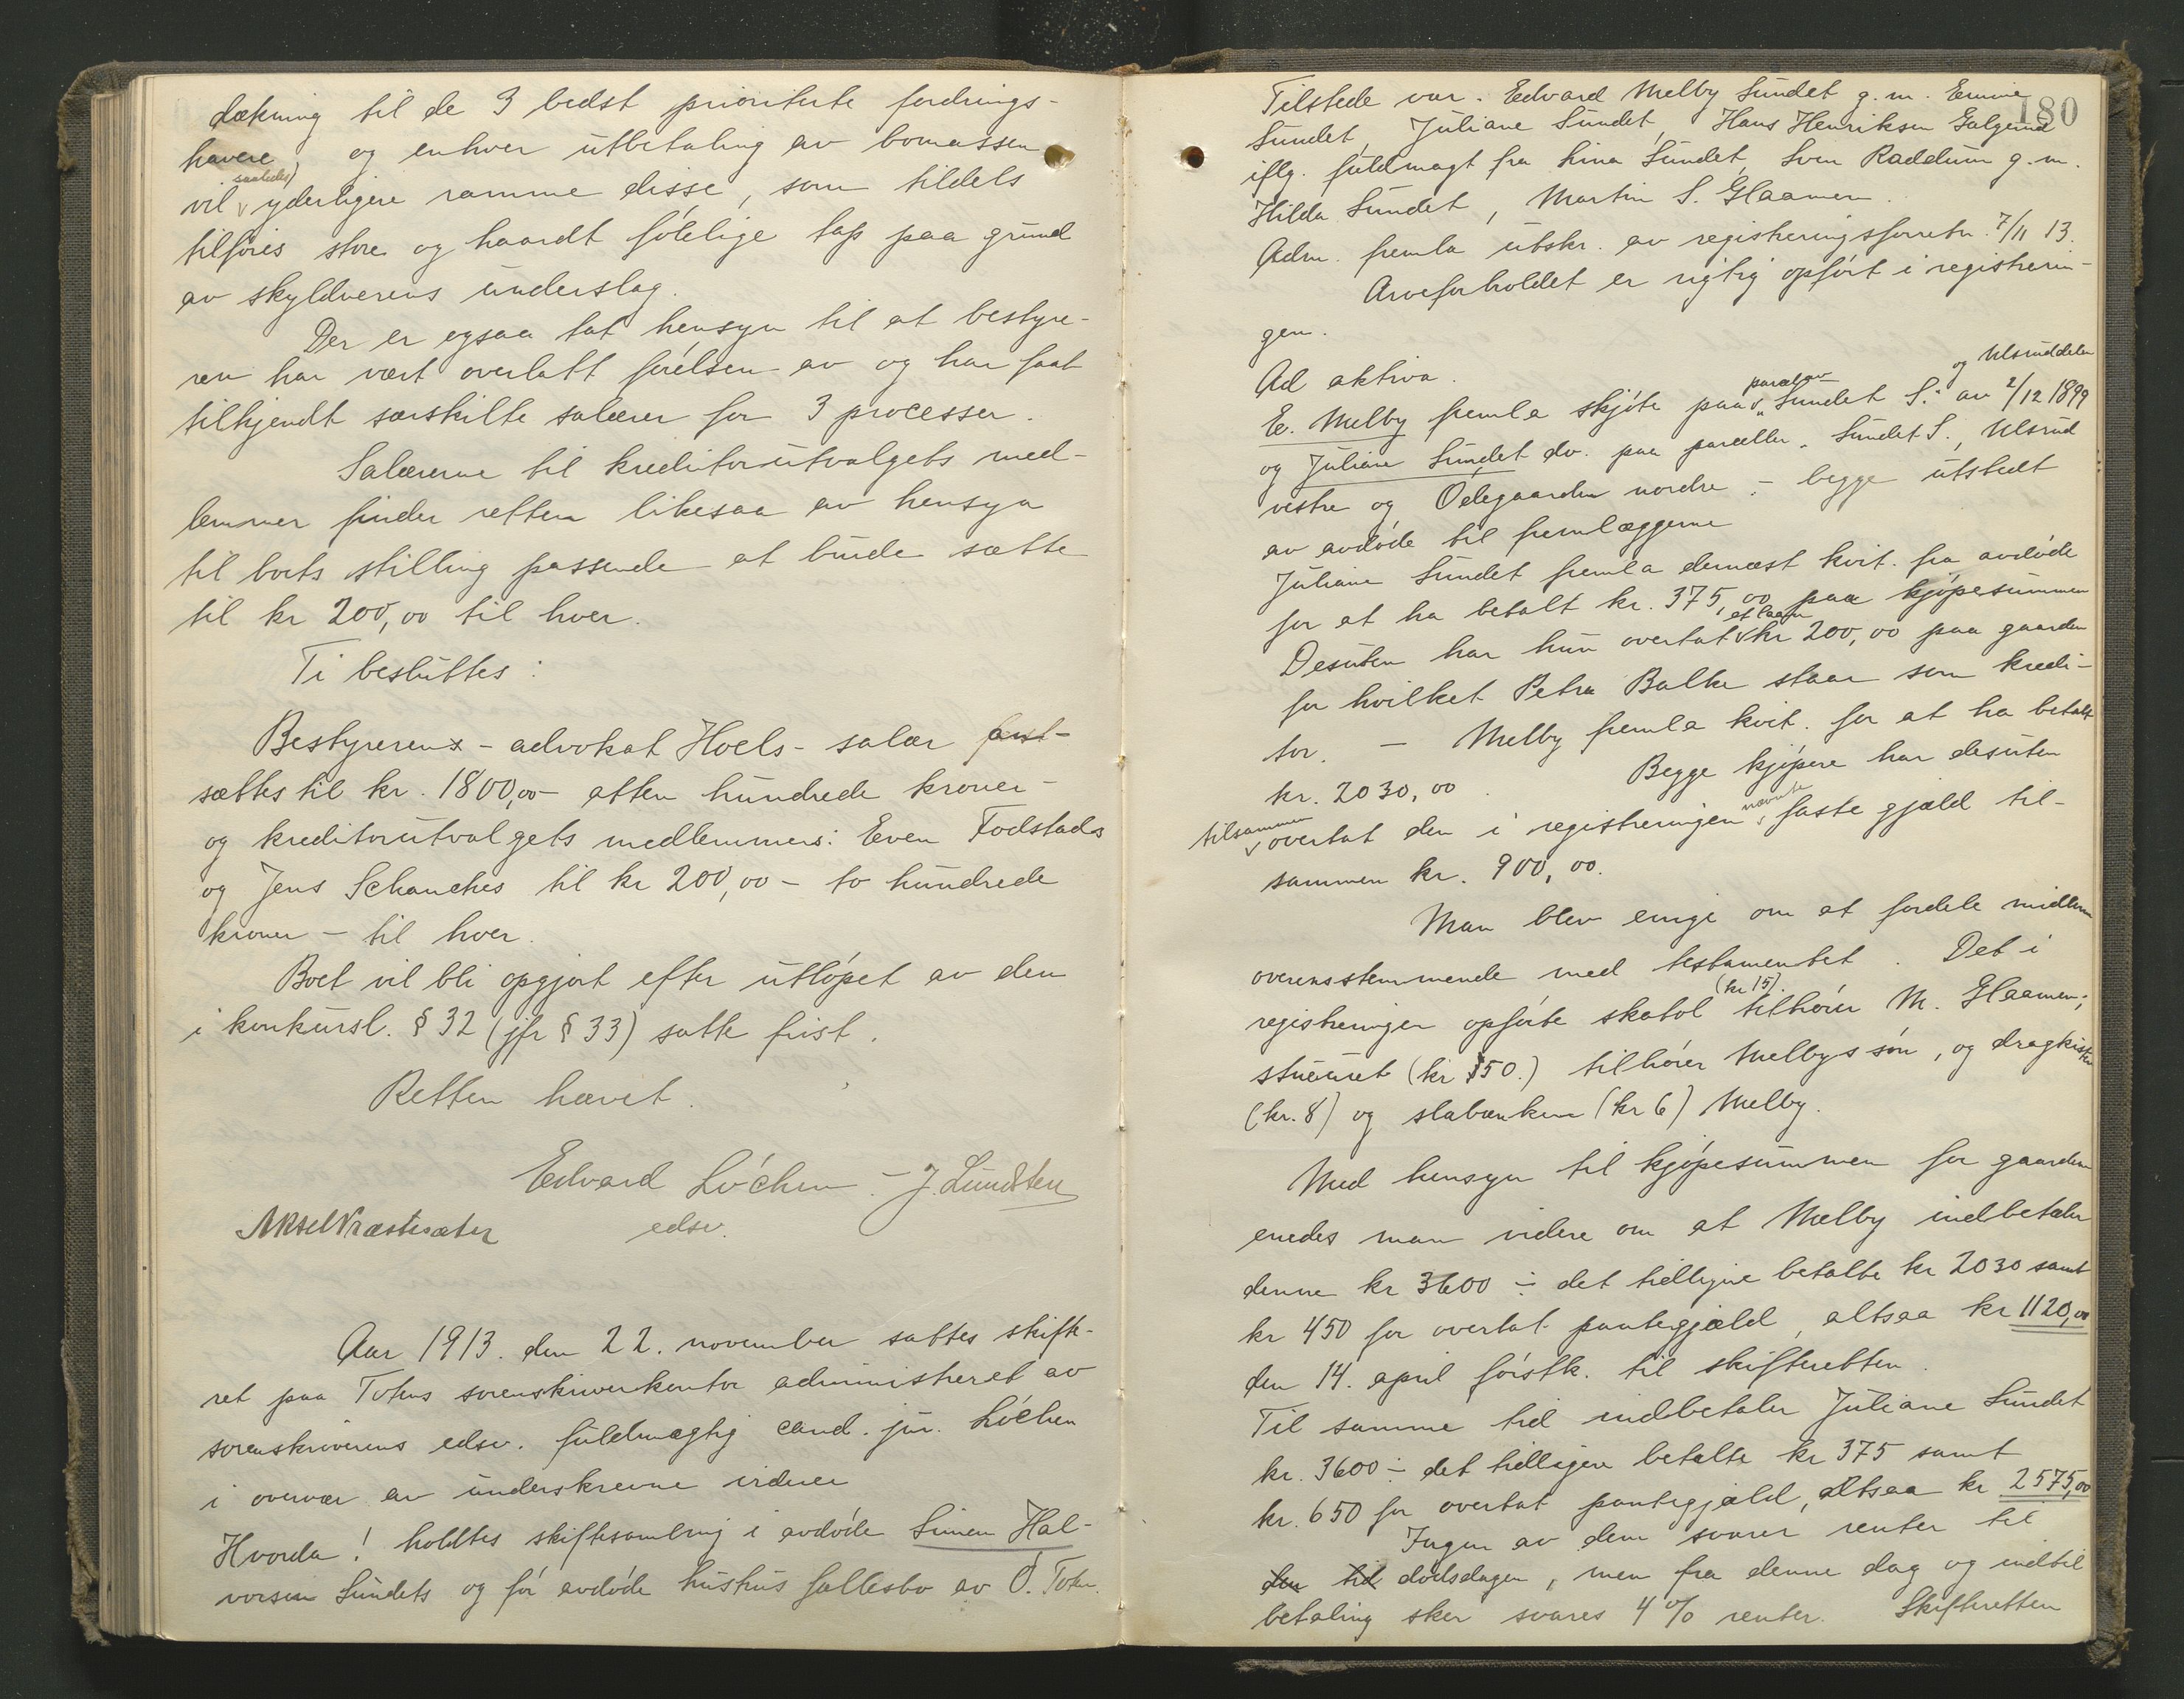 dækning til de 3 bedst prioriterte fordrings-
havere, og enhver utbetaling av bomassen
saaledes
vil yderligere ramme disse, som tildels
tilføies store og haardt følelige tap paa grund
av skyldnerens underslag.
Der er ogsaa tat hensyn til at bestyre-
ren har vært overlatt førelsen av og har faat
tilkjendt særskilte salærer for 3 processer.
Salærerne til kreditorutvalgets med-
lemmer finder retten likesaa av hensyn
til boets stilling passende at burde sætte
til kr 200,00 til hver.
Ti besluttes:
Bestyrerens - advokat Hoels - salær fast-
sættes til kr. 1800,00 - atten hundrede kroner -
og kreditorutvalgets medlemmers: Even Fodstads
og Jens Schanches til kr 200,00 - to hundrede
kroner - til hver.
Boet vil bli opgjort efter utløpet av den
i konkursl. § 32 (jfr § 33) satte frist.
Retten hævet.
Edvard Løchen - J. Lundsten
edsv.
Aksel Præstesæter
Aar 1913 den 22. november sattes skifte-
ret paa Totens sorenskriverkontor administreret av
sorenskriverens edsv. fuldmægtig cand. jur. Løchen
i overvær av underskrevne vidner
Hvorda! holdtes skiftesamling i avdøde Simen Hal-
vorsen Sundets og før avdøde hustrus fællesbo av Ø. Toten.
180
Tilstede var. Edvard Melby Sundet g.m. Emine
Sundet, Juliane Sundet, Hans Henriksen Galgerud
iflg. fuldmagt fra Lina Sundet, Sven Raddum g.m.
Hilda Sundet, Martin S. Glaamen.
Adm. fremla utskr. av registreringsforretn. 7/11 13.
Arveforholdet er rigtig opført i registrerin-
gen.
Ad aktiva.
og Ulsruddelen
parcel av
E. Melby fremla skjøte paa "Sundet S." av 2/12 1899
og Juliane Sundet do. paa parceller. Sundet S., Ulsrud
vestre og Ødegaarden nordre - begge utstedt
av avdøde til fremlæggerne
Juliane Sundet fremla dernæst kvit. fra avdøde
for at ha betalt kr. 375,00 paa kjøpesummen
et laan
Desuten har hun overtat kr 200,00 paa gaarden
for hvilket Petra Balke staar som kredi-
tor. - Melby fremla kvit. for at ha betalt
kr. 2030,00. Begge kjøpere har desuten
tilsammen
nævnte
overtat den i registreringen faste gjæld til-
sammen kr. 900,00.
Man blev enige om at fordele midlerne
overensstemmende med testamentet. Det i
(kr 15).
registreringen opførte skatol tilhører M. Glaamen;
stueuret (kr 50.) tilhører Melbys søn, og dragkisten
(kr. 8) og slabænken (kr 6) Melby.
Med hensyn til kjøpesummen for gaarden
enedes man videre om at Melby indbetaler
denne kr 3600 ÷ det tidligere betalte kr 2030 samt
kr 450 for overtat pantegjæld, altsaa kr 1120,00
den 14. april førstk. til skifteretten.
Til samme tid indbetaler Juliane Sundet
kr. 3600 ÷ det tidligere betalte kr 375 samt
kr. 650 for overtat pantegjæld, altsaa kr 2575,00
Ingen av dem svarer renter til
den tid dødsdagen, men fra denne dag og indtil
betaling sker svares 4 % renter. Skifteretten